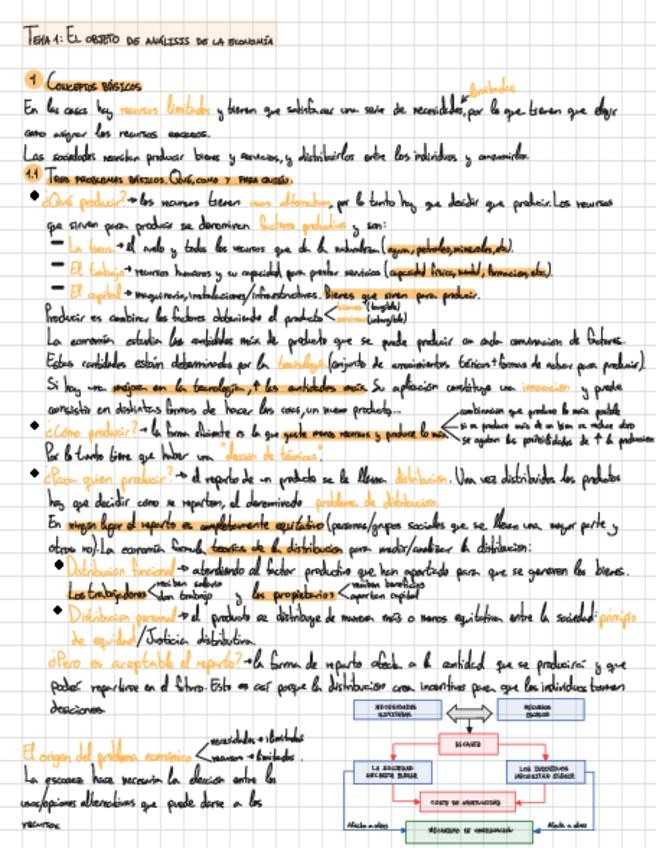 TEMA 1: EL OBJETO DE ANÁLISIS DE LA ECONOMÍA
1 CONCEPTOS BÁSICOS
ilimitadas
En las casas hay recursos limitados y tienen que satisfacer una serie de necesidades, por lo que tienen que elegir
como asignar los recursos escasos.
Las sociedades necesitan producir bienes y servicios, y distribuirlos entre los individuos y consumirlos.
1.1 TRES PROBLEMAS BÁSICOS. QUÉ, COMO Y PARA QUIÉN.
¿Qué producir? → los recursos tienen usos alternativos, por lo tanto hay que decidir que producir. Los recursos
que sirven para producir se denominan factores productivos y son:
— La tierra → el suelo y todos los recursos que da la naturaleza (agua, petroleo, minerales, etc).
— El trabajo → recursos humanos y su capacidad para prestar servicios (capacidad física, mental, formacion, etc).
— El capital → maquinaria, instalaciones/infraestructuras. Bienes que sirven para producir.
Producir es combinar los factores obteniendo el producto < bienes (tangible)
servicios (intangible)
La economía estudia las cantidades máx de producto que se puede producir con cada combinacion de factores.
Estas cantidades están determinadas por la tecnología (conjunto de conocimientos técnicos + formas de saber para producir).
Si hay una mejora en la tecnología, ↑ las cantidades máx. Su aplicación constituye una innovacion y puede
consistir en distintas formas de hacer las cosas, un nuevo producto...
¿Cómo producir? → la forma eficiente es la que gaste menos recursos y produce lo máx
combinacion que produce lo máx posible
si se produce más de un bien se reduce otro
se agotan las posibilidades de ↑ la produccion
Por lo tanto tiene que haber una "eleccion de técnicas".
¿Para quien producir? → el reparto de un producto se le llama distribucion. Una vez distribuidos los productos
hay que decidir cómo se reparten, el denominado problema de distribucion.
En ningún lugar el reparto es completamente equitativo (personas/grupos sociales que se llevan una mayor parte y
otros no). La economía formula teorías de la distribucion para medir/analizar la distribucion:
Distribucion funcional → atendiendo al factor productivo que han aportado para que se generen los bienes.
Los trabajadores < reciben salario
dan trabajo
y los propietarios < reciben beneficios
aportan capital
Distribucion personal → el producto se distribuye de manera más o menos equitativa entre la sociedad: principio
de equidad/Justicia distributiva.
¿Pero es aceptable el reparto? → la forma de reparto afecta a la cantidad que se producirá y que
podrá repartirse en el futuro. Esto es así porque la distribucion crea incentivos para que los individuos tomen
decisiones.
El origen del problema económico < necesidades → ilimitadas
recursos → limitados.
La escasez hace necesaria la eleccion entre los
usos/opciones alternativas que puede darse a los
recursos
NECESIDADES ILIMITADAS
RECURSOS ESCASOS
ESCASEZ
LA SOCIEDAD NECESITA ELEGIR
LOS INDIVIDUOS NECESITAN ELEGIR
COSTE DE OPORTUNIDAD
Afecta a otros
Afecta a otros
NECESIDAD DE COORDINACIÓN